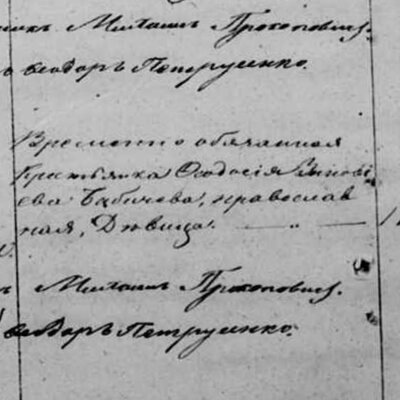 никъ Михаилъ Прокоповичъ.
Ѳеодоръ Петрусенко.
Временно обязанная
Крестьянка Ѳеодосія Зинові
ева Бабичева, православ
ная, Дѣвица. — „ —
ъ Михаилъ Прокоповичъ.
Ѳеодоръ Петрусенко.